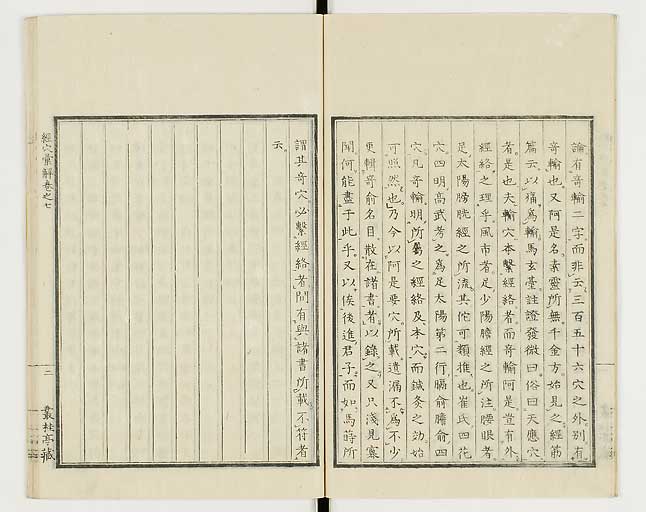 論有奇輸二字而非云三百五十六穴之外別有
奇輸也又阿是名素靈所無千金方始見之經筋
篇云以痛為輸馬玄臺註證發微曰俗曰天應穴
者是也夫輸穴本繫經絡者而奇輸阿是豈有外
經絡之理乎風市者足少陽膽經之所注腰眼者
足太陽膀胱經之所流其佗可類推也崔氏四花
穴四明高武考之為足太陽第二行膈俞膽俞四
穴凡奇輸明所屬之經絡及本穴而鍼灸之効始
可照然也乃今以阿是要穴所載遺漏不為不少
更輯奇俞名目散在諸書者以錄之又只淺見寡
聞何能盡于此乎又以俟後進君子而如馬蒔所
謂其奇穴必繫經絡者間有與諸書所載不符者
云
經穴彙解卷之七
三
叢桂亭藏